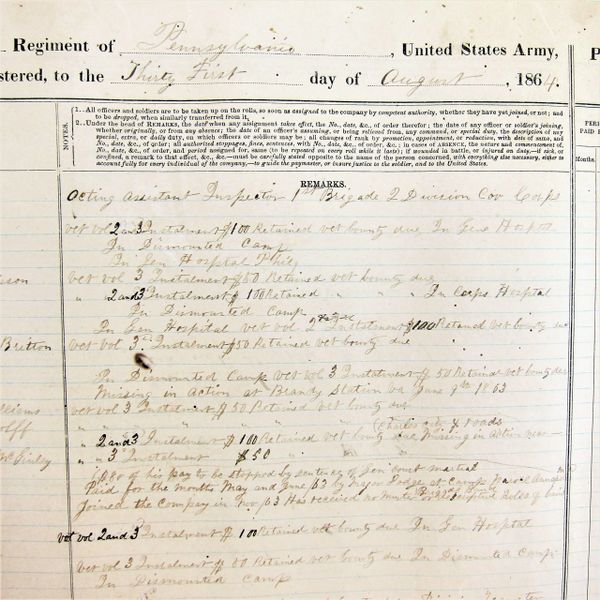 Regiment of Pennsylvania, United States Army,
stered, to the Thirty First day of August, 1864.
P
NOTES.
1.—All officers and soldiers are to be taken up on the rolls, so soon as assigned to the company by competent authority, whether they have yet joined, or not; and
to be dropped, when similarly transferred from it.
2.—Under the head of REMARKS, the date when any assignment takes effect, the No., date, &c., of order therefor; the date of any officer or soldier's joining,
whether originally, or from any absence; the date of an officer's assuming, or being relieved from, any command, or special duty, the description of any
special, extra, or daily duty, on which officers or soldiers may be; all changes of rank by promotion, appointment, or reduction, with date of same, and
No., date, &c., of order; all authorized stoppages, fines, sentences, with No., date, &c., of order; in cases of ABSENCE, the nature and commencement of,
No., date, &c., of order, and period assigned for, same (to be repeated on every roll while it lasts); if wounded in battle, or injured on duty,—if sick, or
confined, a remark to that effect, &c., &c.,—must be carefully stated opposite to the name of the person concerned, with everything else necessary, either to
account fully for every individual of the company, &c., &c.,—to guide the paymaster, or insure justice to the soldier, and to the United States.
PER
PAID
Months.
REMARKS.
Acting Assistant Inspector 1st Brigade 2 Division Cav Corps
vet vol 2 and 3 Instalment $100 Retained vet bounty due, In Gen Hospital
In Dismounted Camp
In Gen Hospital Phil
vet vol 3 Instalment $50 Retained vet bounty due
" 2 and 3 Instalment $100 Retained " " " In Corps Hospital
In Dismounted Camp
In Gen Hospital vet vol 2 Instalment $100 Retained vet bounty due
Britton
vet vol 3 Instalment $50 Retained vet bounty due
In Dismounted Camp vet vol 3 Instalment $50 Retained vet bounty due
Missing in Action at Brandy Station Va June 9th 1863
vet vol 3 Instalment $50 Retained vet bounty due
" " " " " " " Charles city X roads
" 2 and 3 Instalment $100 Retained vet bounty due Missing in Action near
" 3 Instalment $50 " " "
of his pay to be stopped by sentence of Gen Court martial
Paid for the months May and June 63 by Major at Camp Parole
Joined the Company in Nov 63 Has received no
vet vol 2 and 3 Instalment $100 Retained vet bounty due In Gen Hospital
vet vol 3 Instalment $50 Retained vet bounty due In Dismounted Camp
In Dismounted Camp